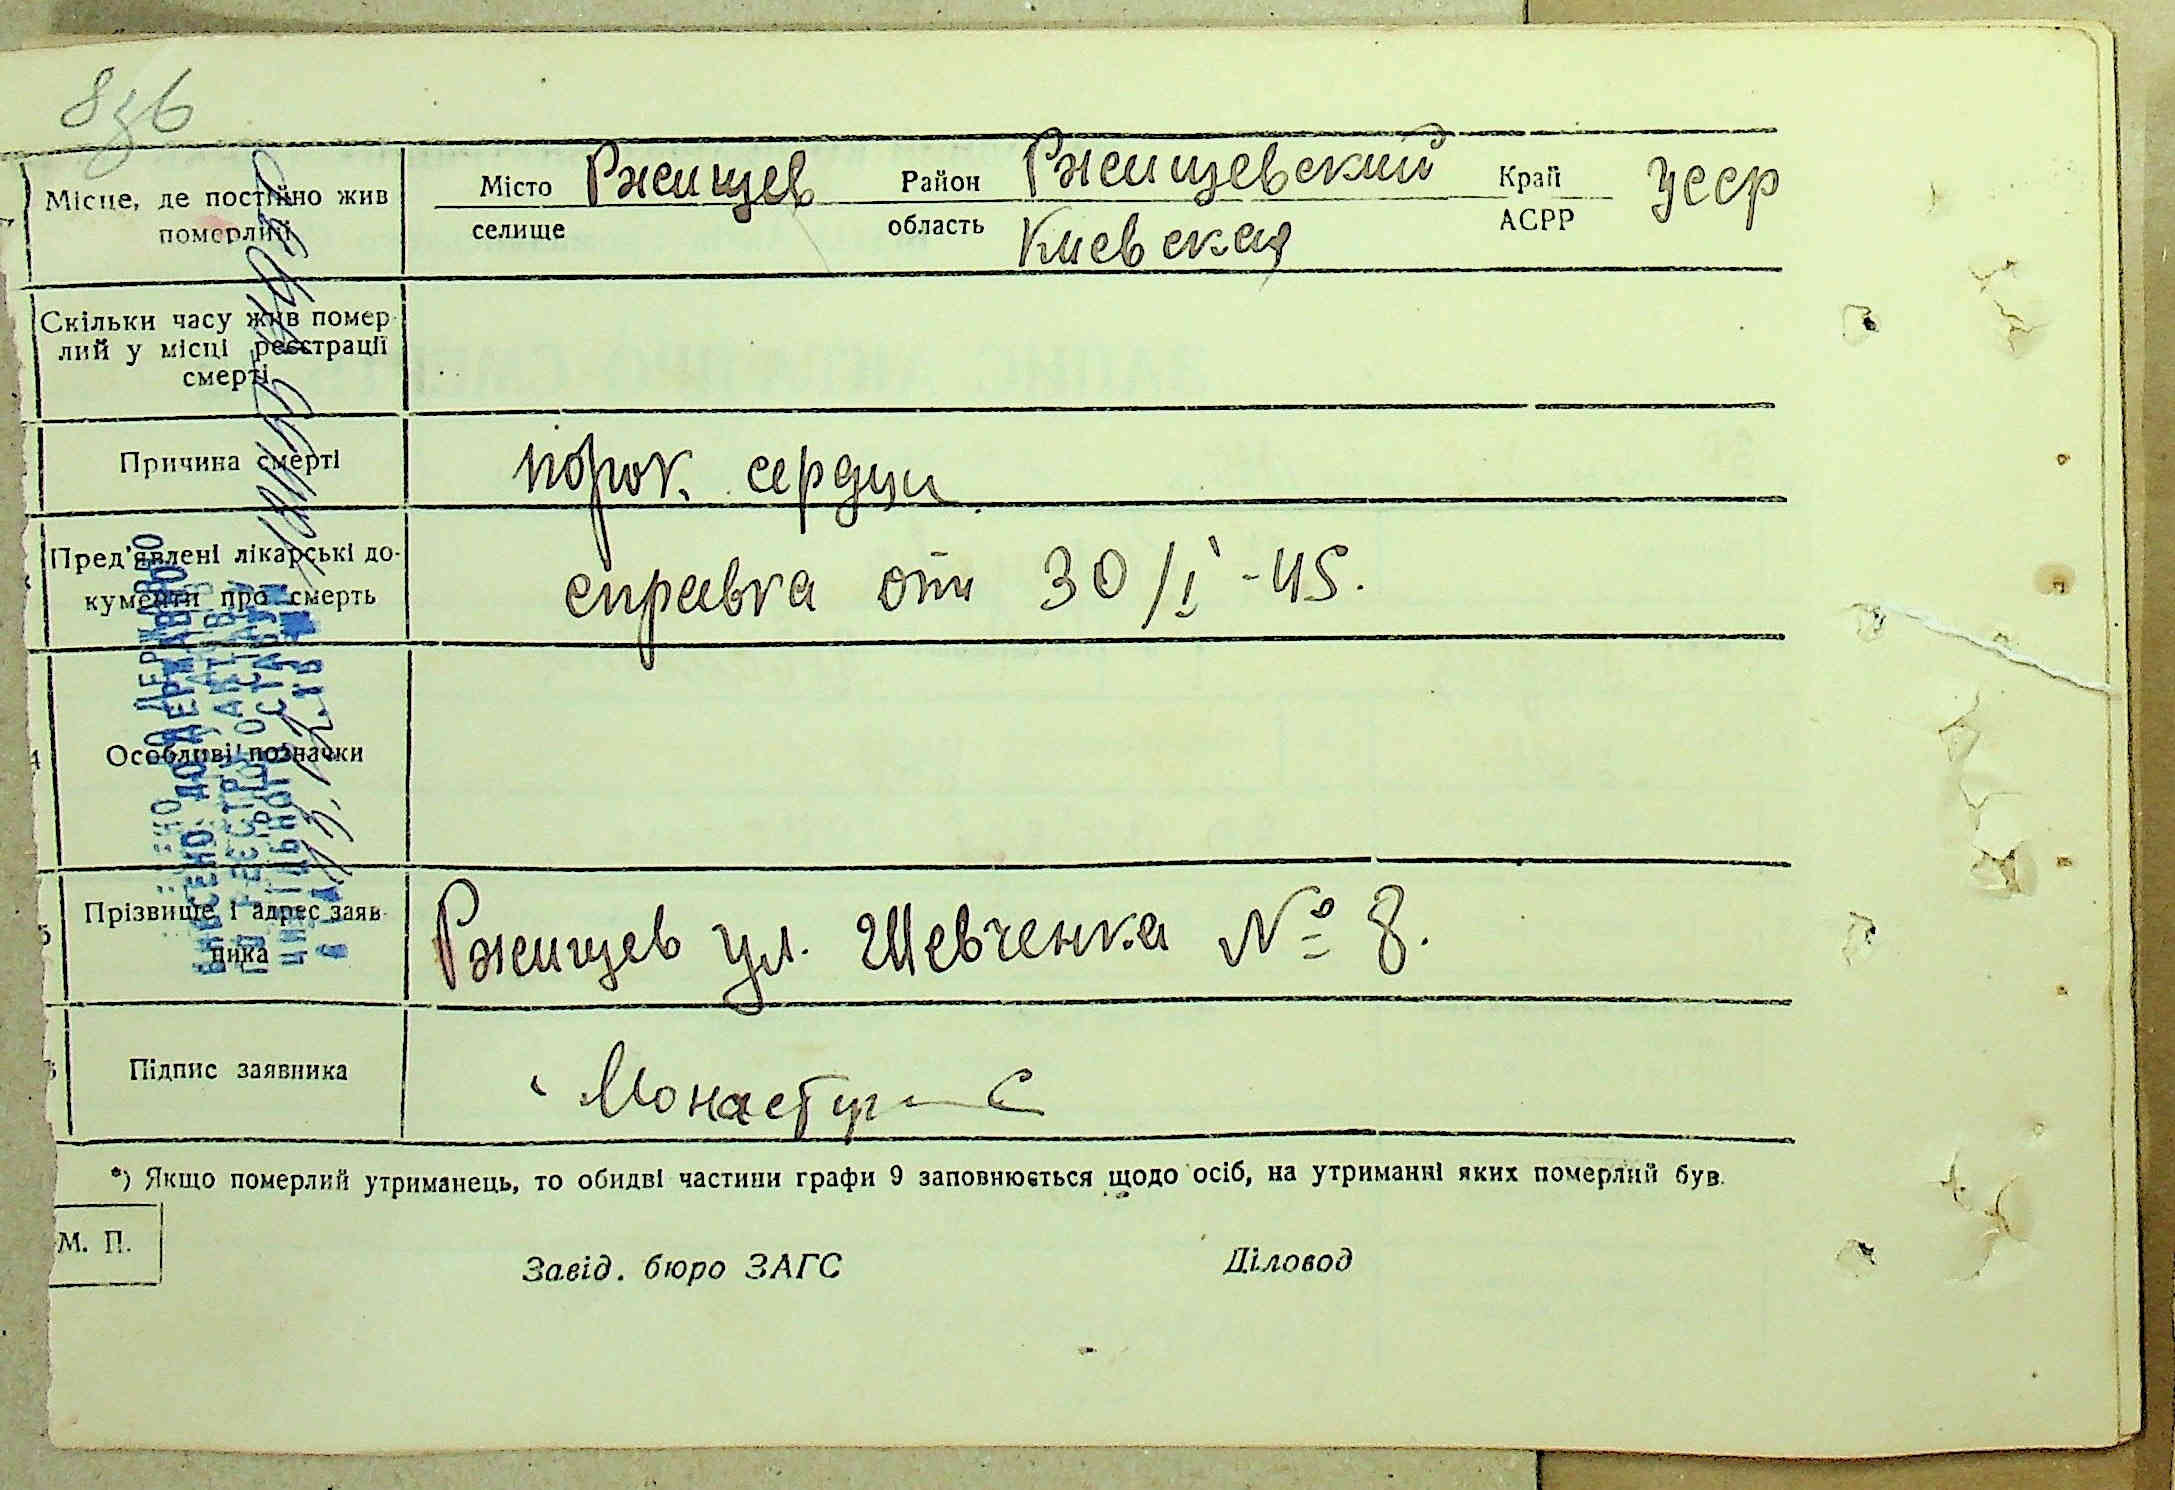 Місце, де постійно жив померлий
Місто Ржищев Район Ржищевский Край УССР
селище область Киевская АСРР
Скільки часу жив помер-
лий у місці реєстрації
смерті
Причина смерті
порок сердца
Пред'явлені лікарські до-
кументи про смерть
справка от 30/I-45.
Особливі позначки
Прізвище і адрес заяв-
ника
Ржищев ул. Шевченка № 8.
Підпис заявника
*) Якщо померлий утриманець, то обидві частини графи 9 заповнюється щодо осіб, на утриманні яких померлий був.
М. П.
Завід. бюро ЗАГС Діловод